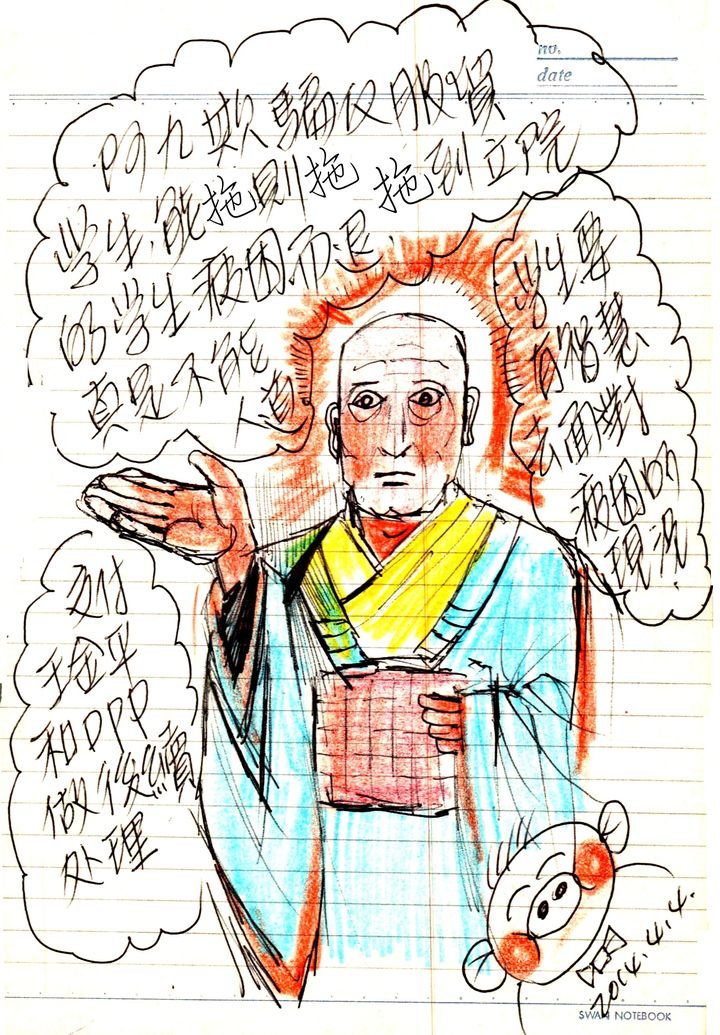 no.
date
阿九欺騙反服貿
学生,能拖則拖 拖到立院
的学生疲困而退
真是不能
人道
学生要
有智慧
去面對
疲困的
現況
交付
王金平
和DPP
做後續
处理
2014.4.4.
SWAN NOTEBOOK